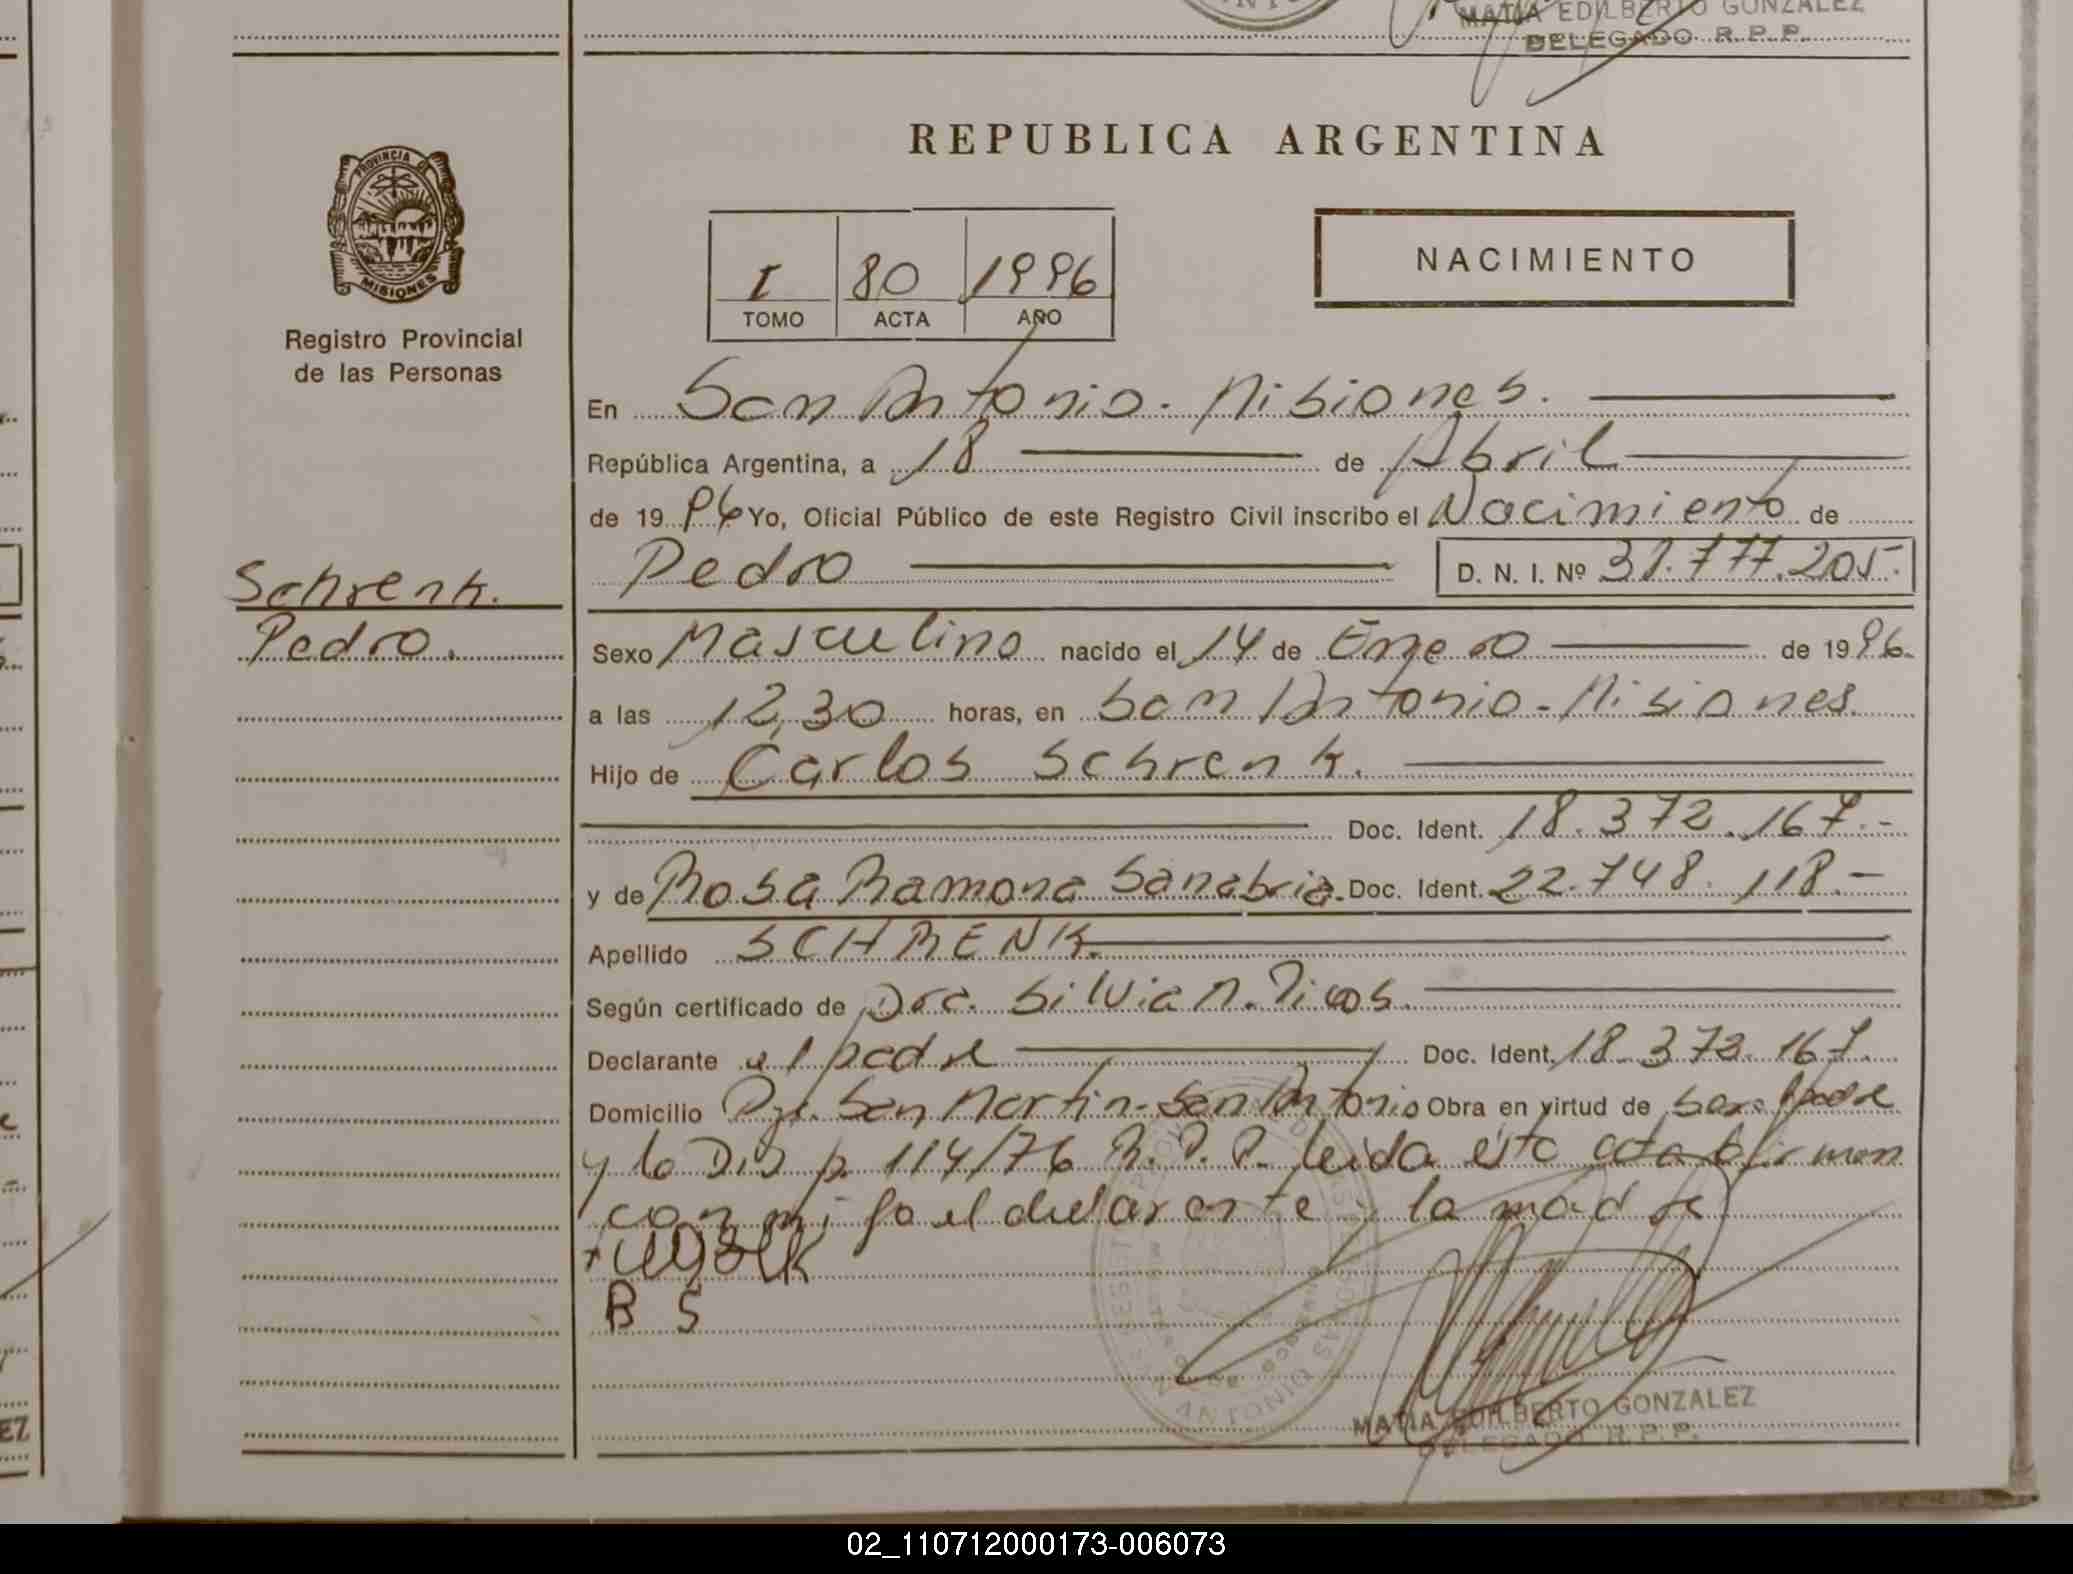 MATIA EDILBERTO GONZALEZ
DELEGADO R.P.P.
REPUBLICA ARGENTINA
PROVINCIA D
MISIONES
Registro Provincial
de las Personas
I 80 1996
TOMO ACTA AÑO
NACIMIENTO
En San Antonio - Misiones.
República Argentina, a 18 de Abril
de 1996 Yo, Oficial Público de este Registro Civil inscribo el Nacimiento de
Pedro D. N. I. Nº 39.777.205.
Schrenk.
Pedro.
Sexo Masculino nacido el 14 de Enero de 1996.
a las 12,30 horas, en San Antonio - Misiones.
Hijo de Carlos Schrenk.
Doc. Ident. 18.372.167.-
y de Rosa Ramona Sanabria. Doc. Ident. 22.748.118.-
Apellido SCHRENK.
Según certificado de Dra. Silvia
Declarante el padre Doc. Ident. 18.372.167.
Domicilio San Martin - San Antonio Obra en virtud de ser padre
y la 114/76 R.P.P. leida esta acta firman
conmigo el declarante y la madre
B S
MATIA EDILBERTO GONZALEZ
DELEGADO R.P.P.
EZ
02_110712000173-006073